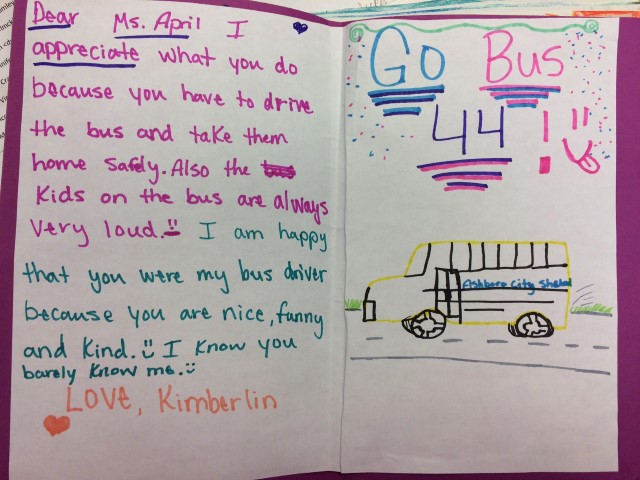 Dear Ms. April I
appreciate what you do
because you have to drive
the bus and take them
home safely. Also the
Kids on the bus are always
very loud. I am happy
that you were my bus driver
because you are nice, funny
and kind. I know you
barely know me.
Love, Kimberlin
Go Bus
44!
Ashboro City